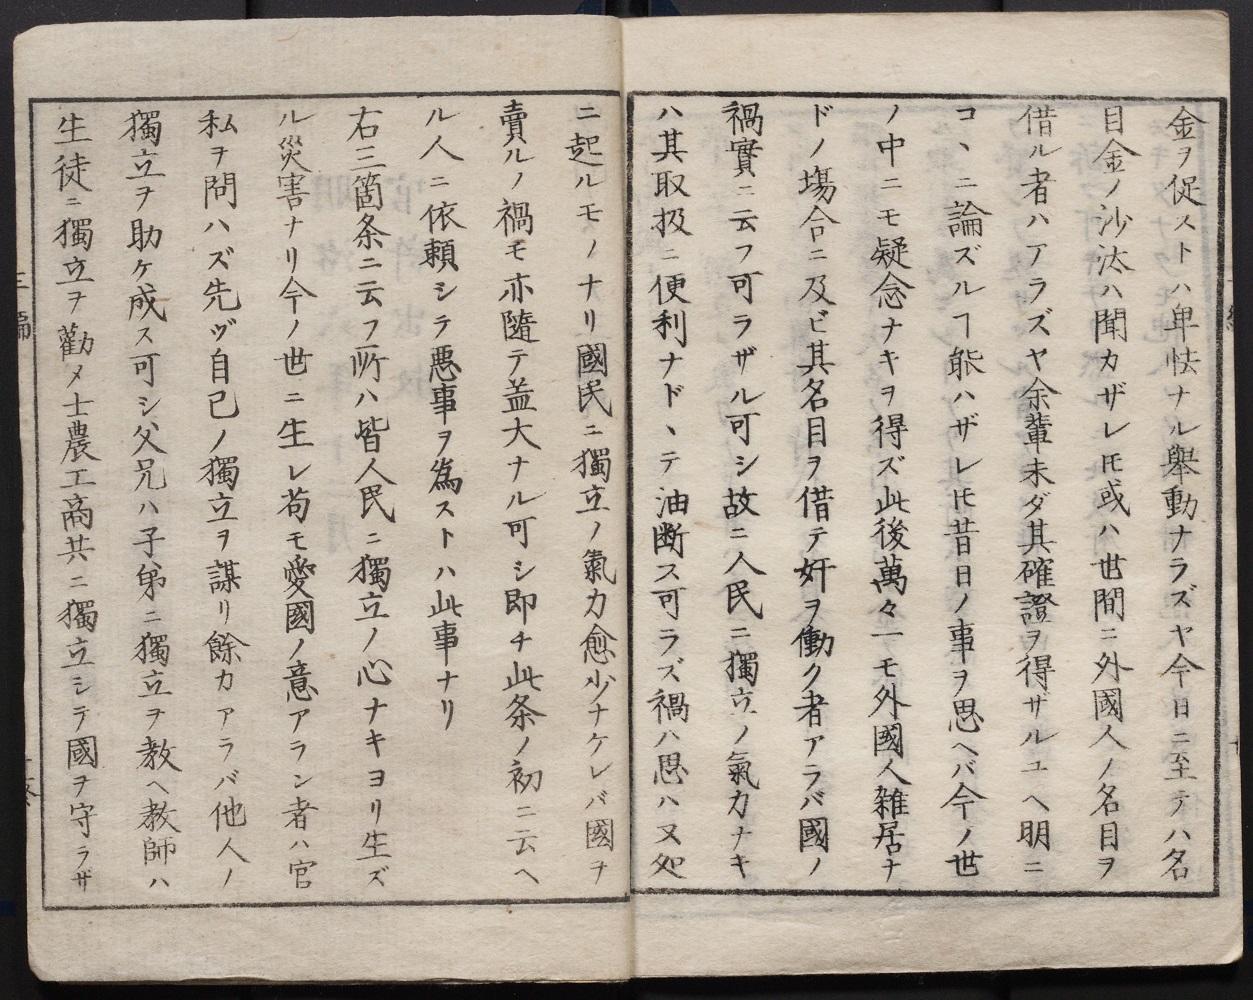 金ヲ促ストハ卑怯ナル擧動ナラズヤ今日ニ至テハ名
目金ノ沙汰ハ聞カザレ𪜈或ハ世間ニ外國人ノ名目ヲ
借ル者ハアラズヤ余輩未ダ其確證ヲ得ザルユヘ明ニ
コヽニ論ズルヿ能ハザレ𪜈昔日ノ事ヲ思ヘバ今ノ世
ノ中ニモ疑念ナキヲ得ズ此後萬々一モ外國人雑居ナ
ドノ塲合ニ及ビ其名目ヲ借テ奸ヲ働ク者アラバ國ノ
禍實ニ云フ可ラザル可シ故ニ人民ニ獨立ノ氣力ナキ
ハ其取扱ニ便利ナドヽテ油断ス可ラズ禍ハ思ハヌ処
ニ起ルモノナリ國民ニ獨立ノ氣力愈少ナケレバ國ヲ
賣ルノ禍モ亦隨テ益大ナル可シ即チ此条ノ初ニ云ヘ
ル人ニ依頼シテ悪事ヲ為ストハ此事ナリ
右三箇条ニ云フ所ハ皆人民ニ獨立ノ心ナキヨリ生ズ
ル災害ナリ今ノ世ニ生レ苟モ愛國ノ意アラン者ハ官
私ヲ問ハズ先ヅ自己ノ獨立ヲ謀リ餘力アラバ他人ノ
獨立ヲ助ケ成ス可シ父兄ハ子弟ニ獨立ヲ教ヘ教師ハ
生徒ニ獨立ヲ勸メ士農工商共ニ獨立シテ國ヲ守ラザ
三編